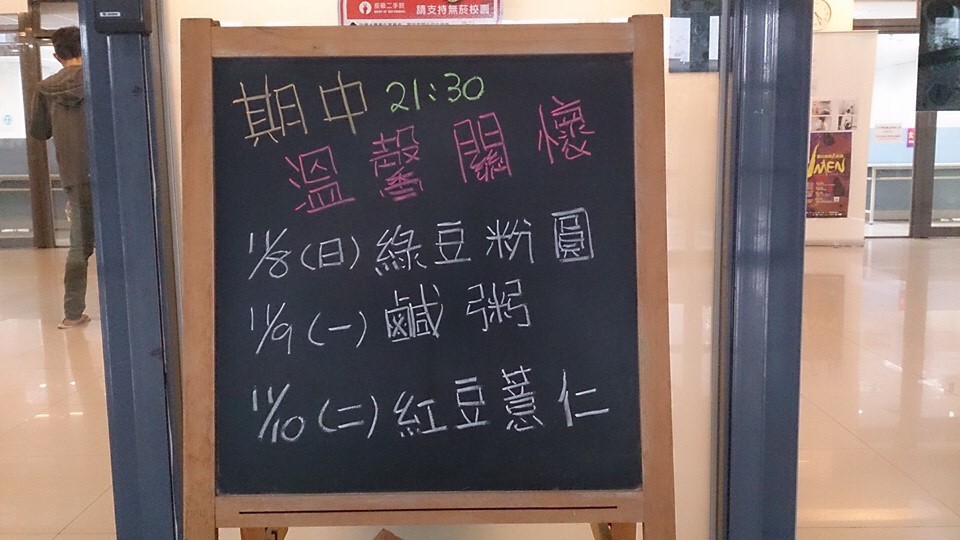 拒吸二手菸
請支持無菸校園
期中 21:30
溫馨關懷
11/8(日)綠豆粉圓
11/9(一)鹹粥
11/10(二)紅豆薏仁
MEN